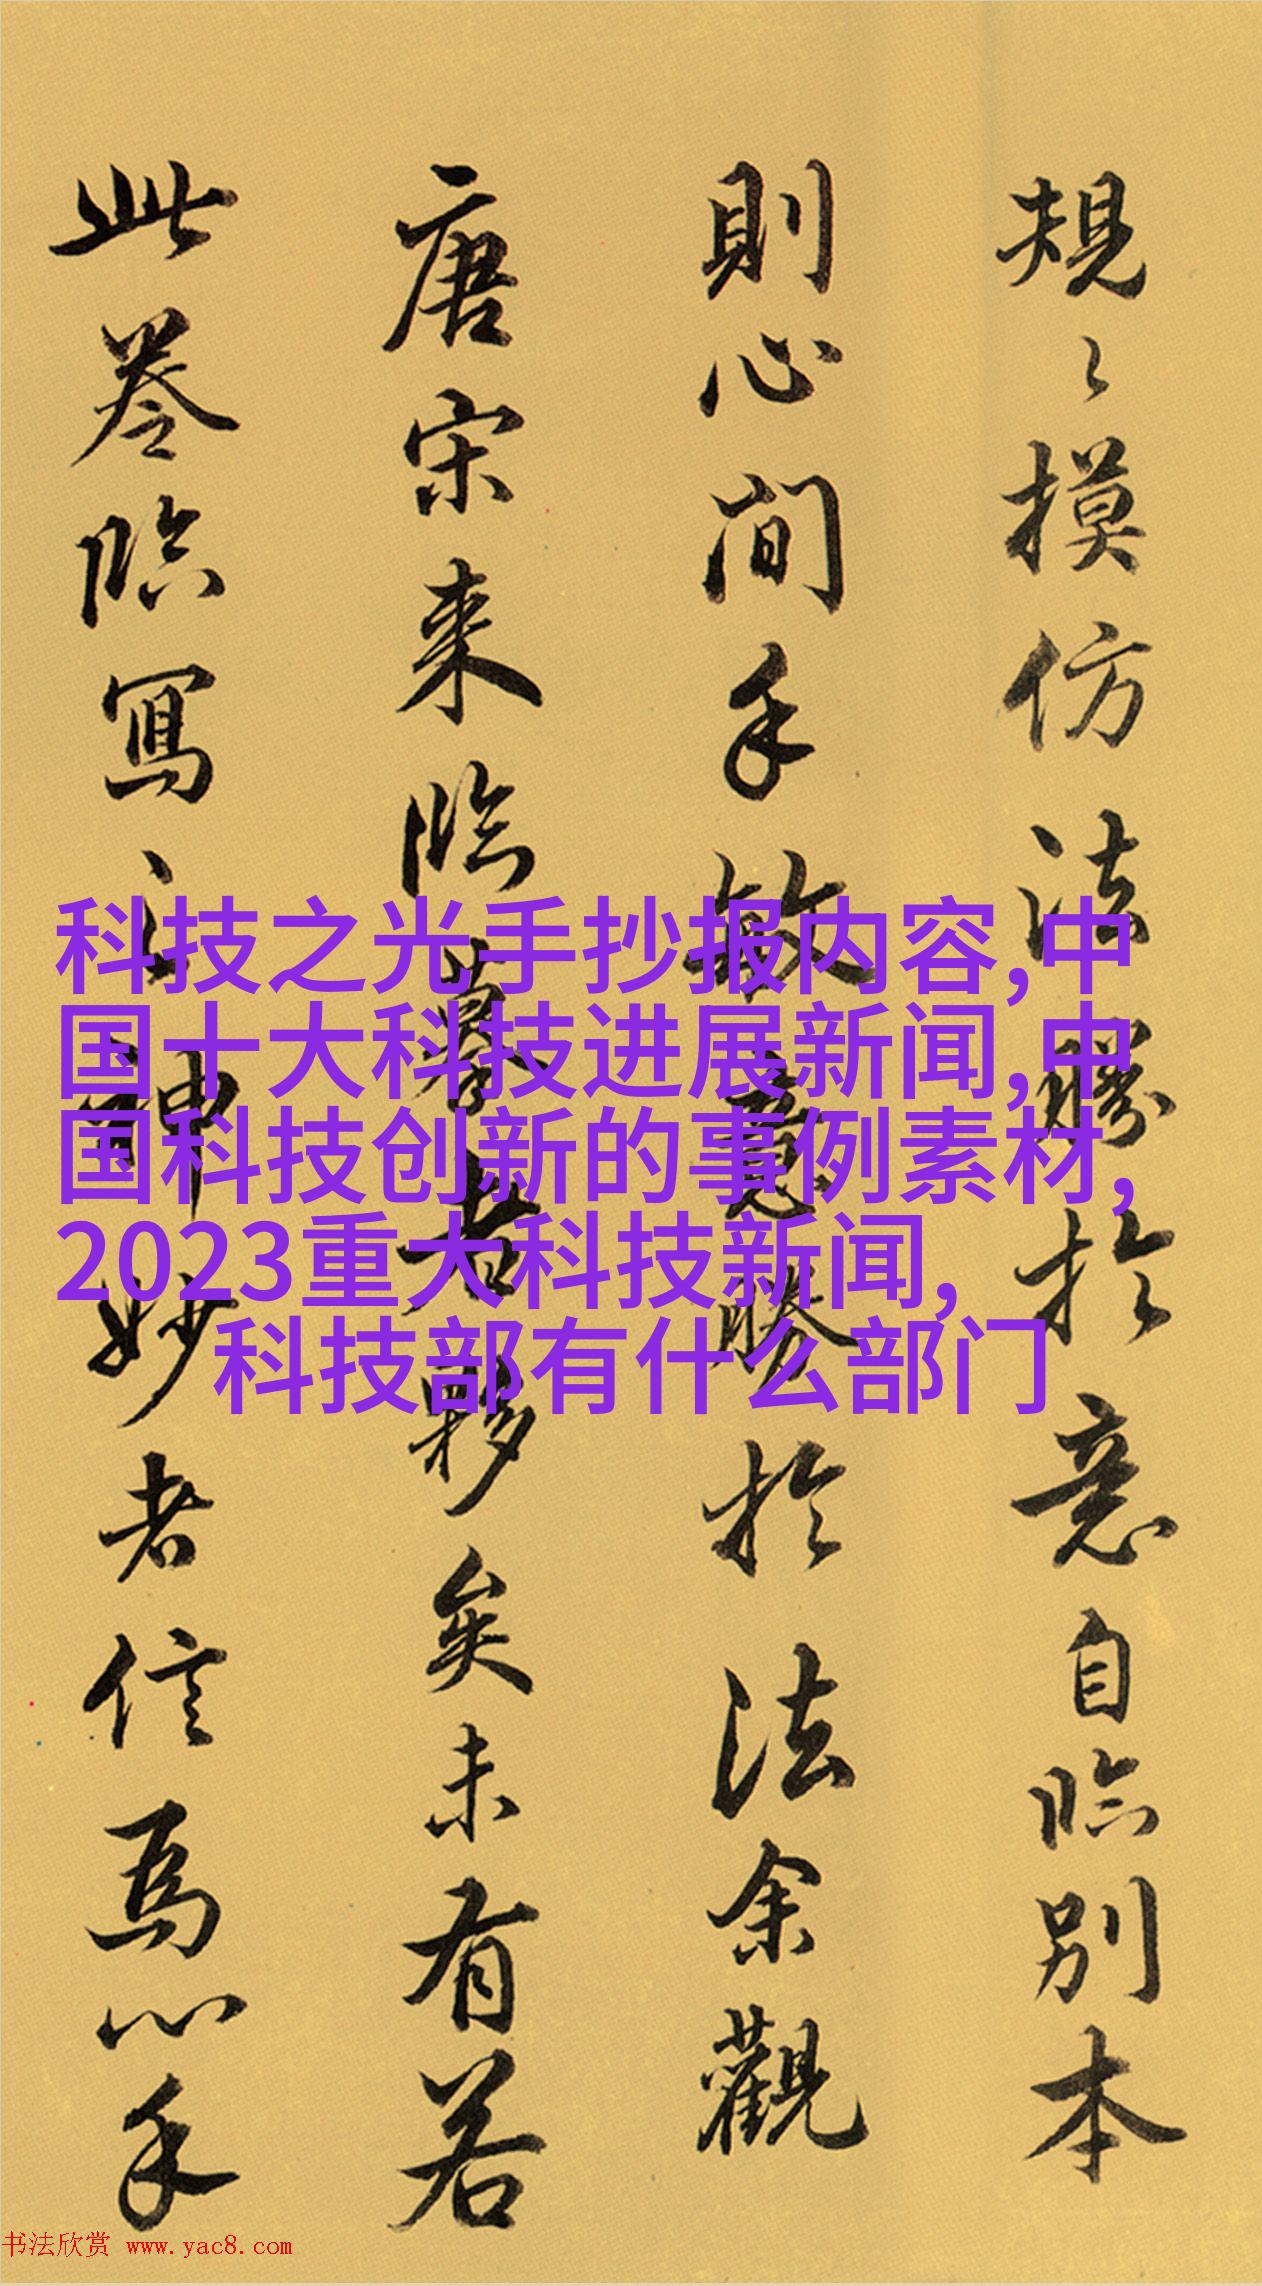 規〻摸仿法勝於意自臨別本
則心間手敏意勝於法余觀
唐宋来臨摹者夥矣未有若
此卷臨寫之神妙者信為心手
科技之光手抄报内容,中
国十大科技进展新闻,中
国科技创新的事例素材,
2023重大科技新闻,
科技部有什么部门
书法欣赏 www.yac8.com